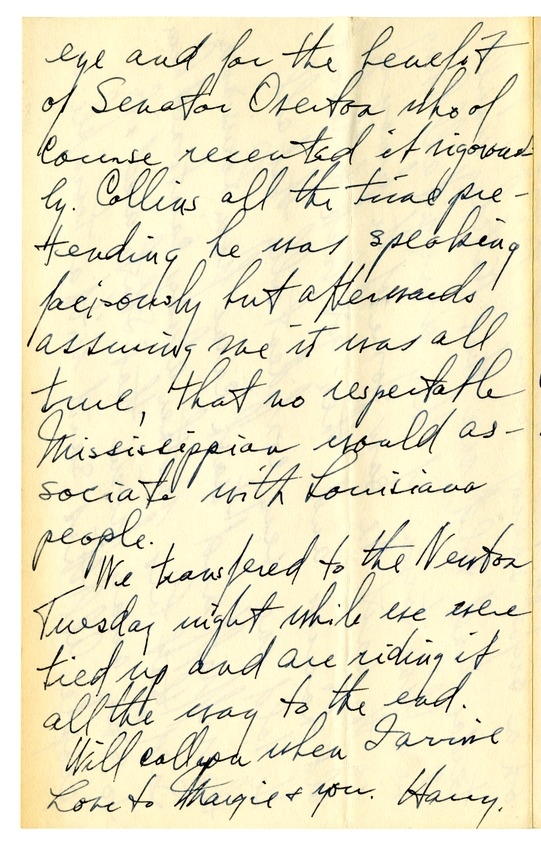 eye and for the benefit
of Senator Overton who of
course resented it vigorous-
ly. Collins all the time pre-
tending he was speaking
but afterwards
assuring me it was all
true, that no respectable
Mississippian would as-
sociate with Louisiana
people.
We transfered to the Newton
Tuesday night while we were
tied up and are riding it
all the way to the end.
Will call you when I arrive
Love to Margie & you. Harry.